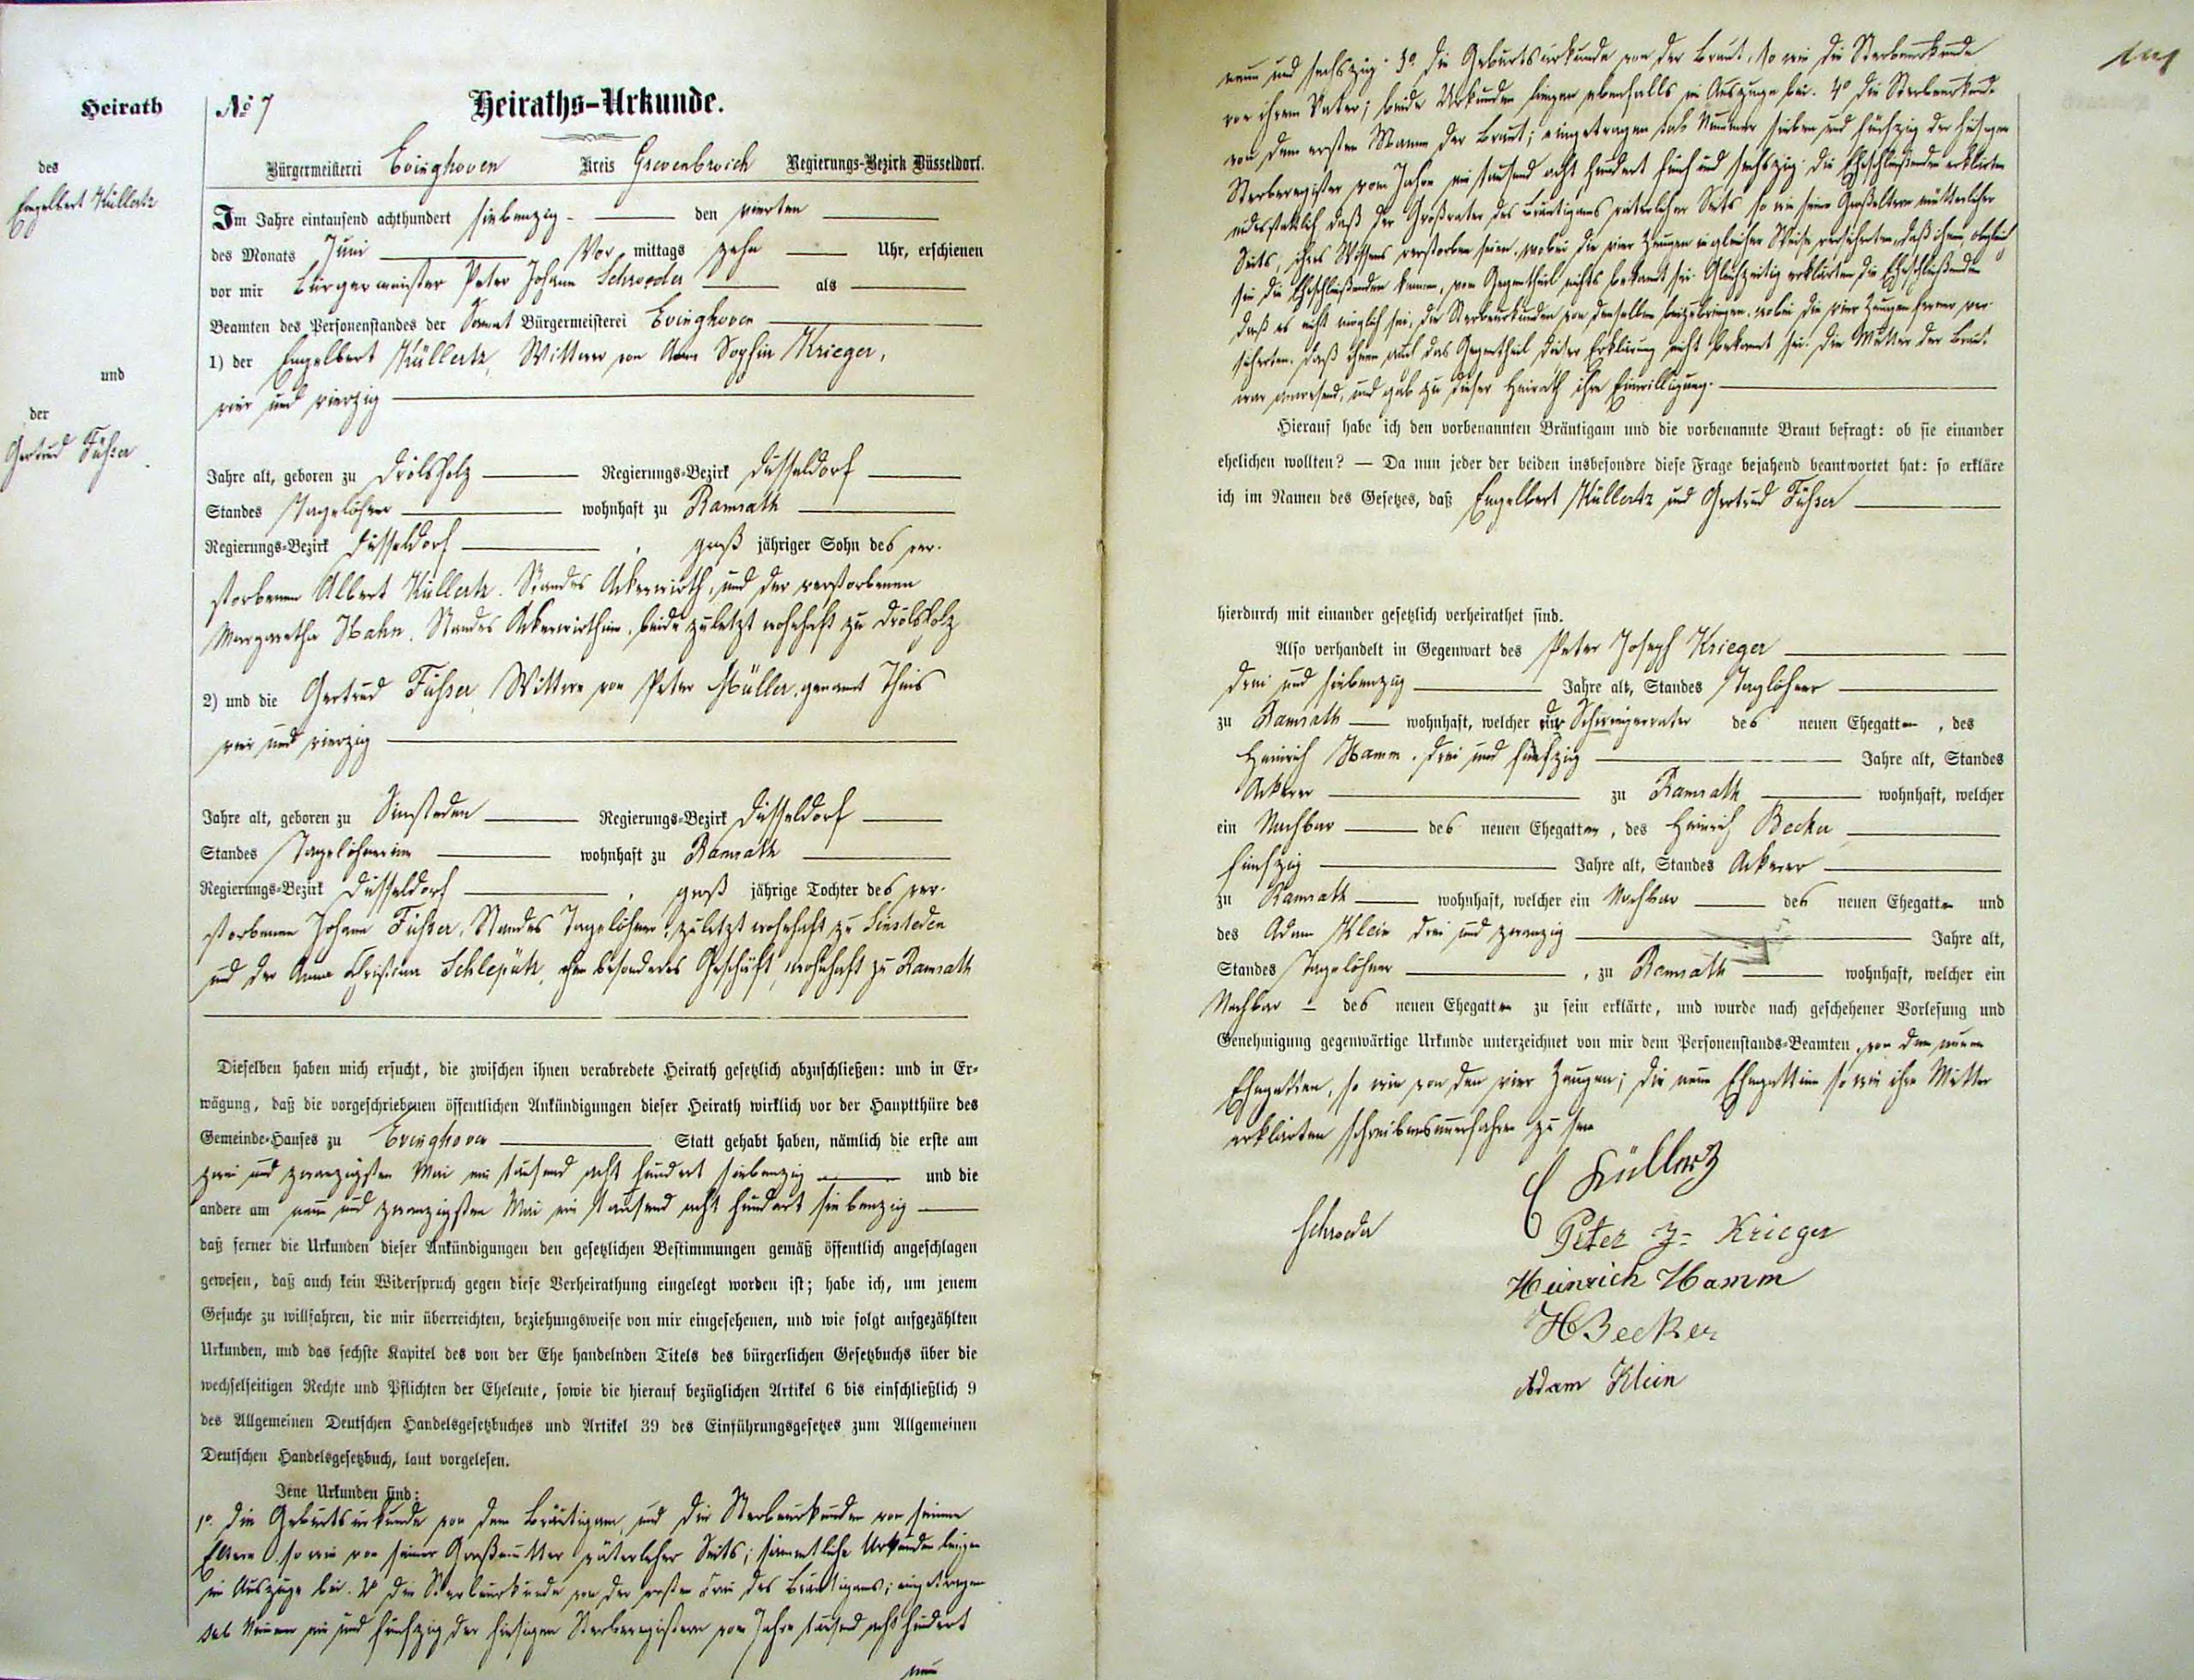 Heirath
des
Engelbert Küllertz
und
der
Gertrud Füsser
No 7
Heiraths-Urkunde.
Bürgermeisterei Evinghoven Kreis Grevenbroich Regierungs-Bezirk Düsseldorf.
Im Jahre eintausend achthundert siebenzig den vierten
des Monats Juni Vor mittags zehn Uhr, erschienen
vor mir Bürgermeister Peter Johann Schroeder als
Beamten des Personenstandes der Samt Bürgermeisterei Evinghoven
1) der Engelbert Küllertz, Wittwer von Anna Sophia Krieger,
vier und vierzig
Jahre alt, geboren zu Drölsholz Regierungs-Bezirk Düsseldorf
Standes Tagelöhner wohnhaft zu Ramrath
Regierungs-Bezirk Düsseldorf, groß jähriger Sohn des ver-
storbenen Albert Küllertz. Standes Ackerwirth, und der verstorbenen
Margaretha Hahn, Standes Ackerwirthin, beide zuletzt wohnhaft zu Drölsholz
2) und die Gertrud Füsser, Wittwe von Peter Müller genannt Theis
vier und vierzig
Jahre alt, geboren zu Sinsteden Regierungs-Bezirk Düsseldorf
Standes Tagelöhnerin wohnhaft zu Ramrath
Regierungs-Bezirk Düsseldorf, groß jährige Tochter des ver-
storbenen Johann Füsser, Standes Tagelöhner, zuletzt wohnhaft zu Sinsteden
und der Anna Christina Schlepütz, ohne besonderes Geschäft, wohnhaft zu Ramrath
Dieselben haben mich ersucht, die zwischen ihnen verabredete Heirath gesetzlich abzuschließen: und in Er-
wägung, daß die vorgeschriebenen öffentlichen Ankündigungen dieser Heirath wirklich vor der Hauptthüre des
Gemeinde-Hauses zu Evinghoven Statt gehabt haben, nämlich die erste am
zwei und zwanzigsten Mai ein tausend acht hundert siebenzig und die
andere am neun und zwanzigsten Mai ein tausend acht hundert siebenzig
daß ferner die Urkunden dieser Ankündigungen den gesetzlichen Bestimmungen gemäß öffentlich angeschlagen
gewesen, daß auch kein Widerspruch gegen diese Verheirathung eingelegt worden ist; habe ich, um jenem
Gesuche zu willfahren, die mir überreichten, beziehungsweise von mir eingesehenen, und wie folgt aufgezählten
Urkunden, und das sechste Kapitel des von der Ehe handelnden Titels des bürgerlichen Gesetzbuchs über die
wechselseitigen Rechte und Pflichten der Eheleute, sowie die hierauf bezüglichen Artikel 6 bis einschließlich 9
des Allgemeinen Deutschen Handelsgesetzbuches und Artikel 39 des Einführungsgesetzes zum Allgemeinen
Deutschen Handelsgesetzbuch, laut vorgelesen.
Jene Urkunden sind:
1o. Die Geburtsurkunde von dem Bräutigam, und die Sterbeurkunden von seinen
Eltern so wie von seiner Großmutter väterlicher Seits; sämmtliche Urkunden liegen
im Auszuge bei. 2o Die Sterbeurkunde von der ersten Frau des Bräutigams; eingetragen
sub Numm ein und fünfzig der hiesigen Sterberegistern vom Jahre tausend acht hundert
neun
neun und sechszig. 3o Die Geburtsurkunde von der Braut, so wie die Sterbeurkunde
von ihrem Vater; beide Urkunden liegen ebenfalls im Auszuge bei. 4o Die Sterbeurkunde
von dem ersten Manne der Braut; eingetragen sub Nummer sieben und fünfzig der hiesigen
Sterberegister vom Jahre ein tausend acht hundert fünf und sechszig. Die Eheschließenden erklärten
eidesstattlich daß der Großvater des Bräutigams väterlicher Seits so wie seine Großeltern mütterlicher
Seits, ihres Wissens verstorben seien, wobei die vier Zeugen in gleicher Weise versicherten, daß ihnen, obgleich
sie die Eheschließenden kennen, vom Gegentheil nichts bekannt sei. Gleichzeitig erklärten die Eheschließenden
daß es nicht möglich sei, die Sterbeurkunden von denselben beizubringen, wobei die vier Zeugen ferner ver-
sicherten, daß ihnen auch das Gegentheil dieser Erklärung nicht bekannt sei. Die Mutter der Braut
war anwesend, und gab zu dieser Heirath ihre Einwilligung.
Hierauf habe ich den vorbenannten Bräutigam und die vorbenannte Braut befragt: ob sie einander
ehelichen wollten? — Da nun jeder der beiden insbesondre diese Frage bejahend beantwortet hat: so erkläre
ich im Namen des Gesetzes, daß Engelbert Küllertz und Gertrud Füsser
hierdurch mit einander gesetzlich verheirathet sind.
Also verhandelt in Gegenwart des Peter Joseph Krieger
drei und siebenzig Jahre alt, Standes Taglöhner
zu Ramrath wohnhaft, welcher der Schwiegervater des neuen Ehegatten, des
Heinrich Hamm, drei und fünfzig Jahre alt, Standes
Ackerer zu Ramrath wohnhaft, welcher
ein Nachbar des neuen Ehegatten, des Heinrich Becker
fünfzig Jahre alt, Standes Ackerer
zu Ramrath wohnhaft, welcher ein Nachbar des neuen Ehegatten und
des Adam Klein drei und zwanzig Jahre alt,
Standes Tagelöhner, zu Ramrath wohnhaft, welcher ein
Nachbar des neuen Ehegatten zu sein erklärte, und wurde nach geschehener Vorlesung und
Genehmigung gegenwärtige Urkunde unterzeichnet von mir dem Personenstands-Beamten, von dem neuen
Ehegatten, so wie von den vier Zeugen; die neue Ehegattin so wie ihre Mutter
erklärten schreibensunerfahren zu sein
E Küllertz
Schroeder
Peter J= Krieger
Heinrich Hamm
H Becker
Adam Klein